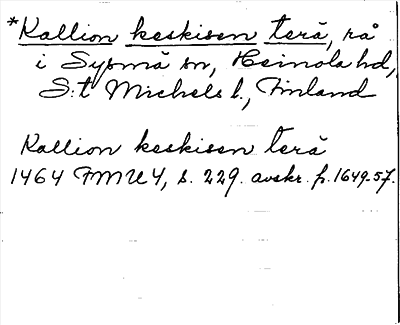 *Kallion keskisen terä, rå
i Sysmä sn, Heinola hd,
S:t Michels l., Finland
Kallion keskisen terä
1464 FMU 4, s. 229. avskr. fr. 1649-57.